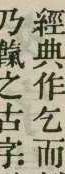 經典作乞而
乃之古字